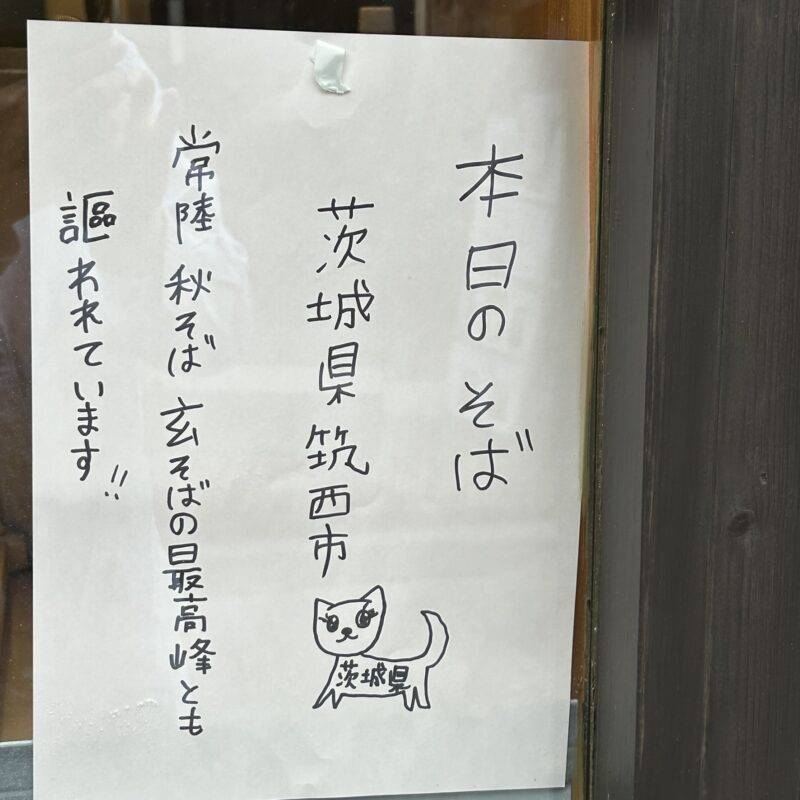 本日の そば
茨城県筑西市
茨城県
常陸 秋そば 玄そばの最高峰とも
謳われています!!